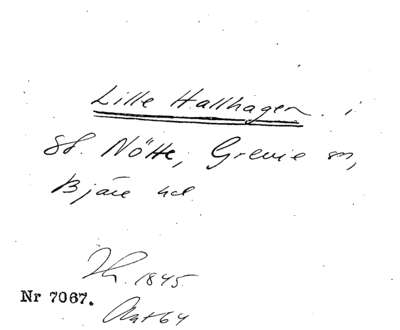 Lille Hallhagen. i
St. Nötte, Grevie sn,
Bjäre hd
1845.
Nr 7067.
Akt 64